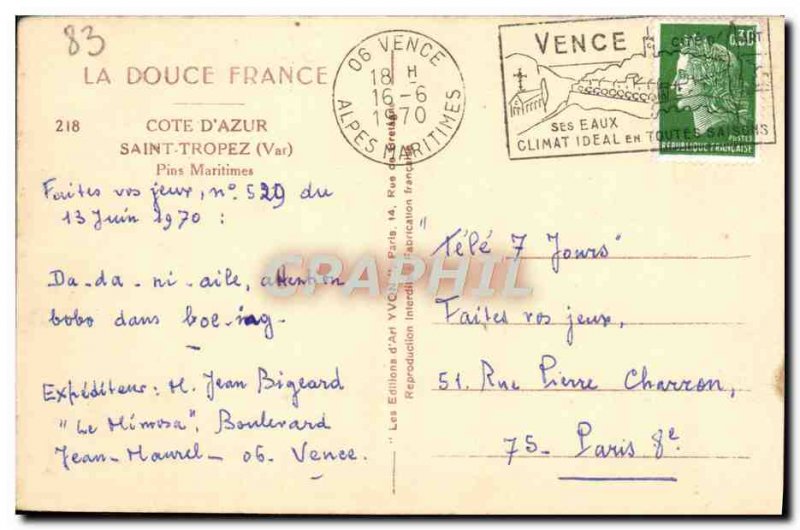 83
LA DOUCE FRANCE
218
COTE D'AZUR
SAINT-TROPEZ (Var)
Pins Maritimes
06 VENCE
18 H
16-6
1970
ALPES MARITIMES
VENCE
SES EAUX
CLIMAT IDEAL EN TOUTES SAISONS
0,30
POSTES
REPUBLIQUE FRANÇAISE
Faites vos jeux, n° 529 du
13 Juin 1970 :
Da-da-ni-aile, attention
bobo dans boe-ing-
Expéditeur : M. Jean Bigeard
"Le Mimosa", Boulevard
Jean-Maurel - 06. Vence.
"Les Editions d'Art YVON" Paris, 14, Rue de Bretagne
Reproduction Interdite Fabrication française
"Télé 7 Jours"
Faites vos jeux,
51. Rue Pierre Charron,
75- Paris 8e
CPAPHIL